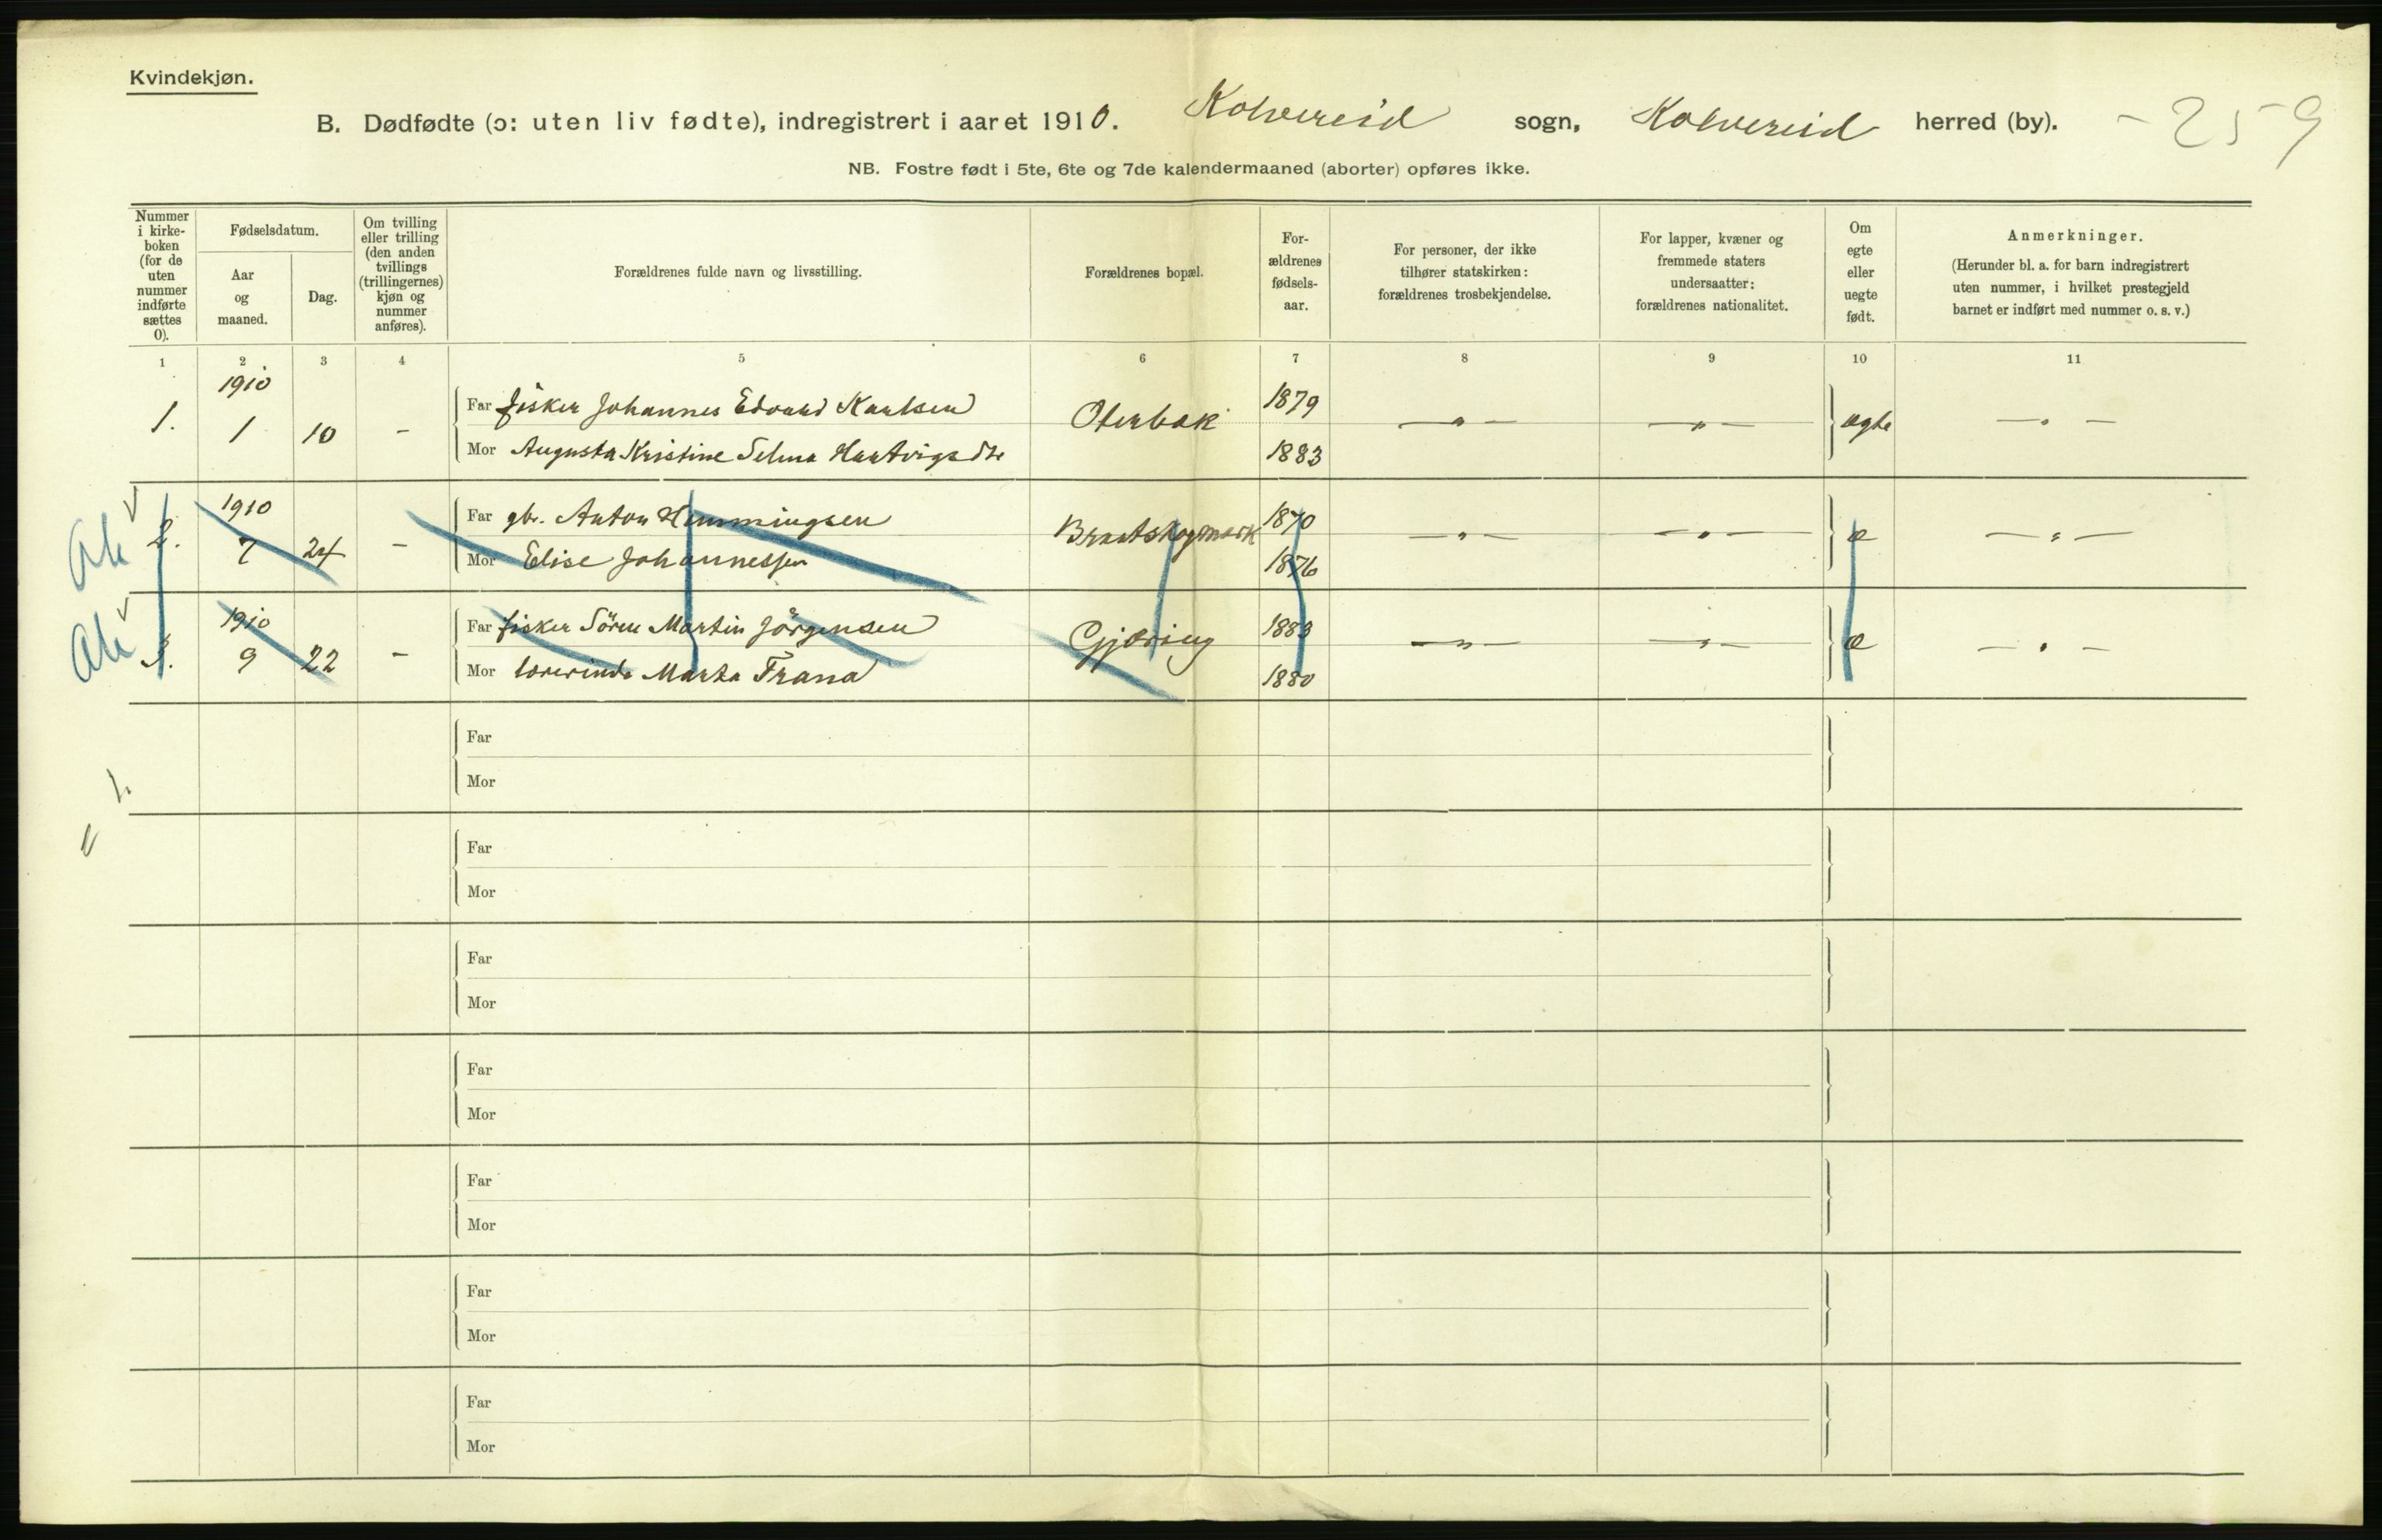 Kvindekjøn.
B. Dødfødte (ɔ: uten liv fødte), indregistrert i aaret 1910. Kolvereid sogn, Kolvereid herred (by). - 259
NB. Fostre født i 5te, 6te og 7de kalendermaaned (aborter) opføres ikke.
Nummer i kirke- boken (for de uten nummer indførte sættes 0).
Fødselsdatum.
Aar og maaned.
Dag.
Om tvilling eller trilling (den anden tvillings (trillingernes) kjøn og nummer anføres).
Forældrenes fulde navn og livsstilling.
Forældrenes bopæl.
For- ældrenes fødsels- aar.
For personer, der ikke tilhører statskirken: forældrenes trosbekjendelse.
For lapper, kvæner og fremmede staters undersaatter: forældrenes nationalitet.
Om egte eller uegte født.
Anmerkninger.
(Herunder bl. a. for barn indregistrert uten nummer, i hvilket prestegjeld barnet er indført med nummer o. s. v.)
1 2 3 4 5 6 7 8 9 10 11
1910
Far fisker Johannes Edvard Karlsen 1879
1. 1 10 - Oterbak — „ — — „ — ægte — „ —
Mor Augusta Kristine Selma Hartvigsdtr 1883
1910
Far gbr. Anton Hemmingsen 1870
2. 7 24 - — „ — — „ — æ — „ —
Mor Elise Johannessen 1876
1910
Far fisker Sören Martin Jörgensen 1883
3. 9 22 - Gjæring — „ — — „ — æ — „ —
Mor Marta Frana 1880
Far
Mor
1.
Far
Mor
Far
Mor
Far
Mor
Far
Mor
Far
Mor
Far
Mor